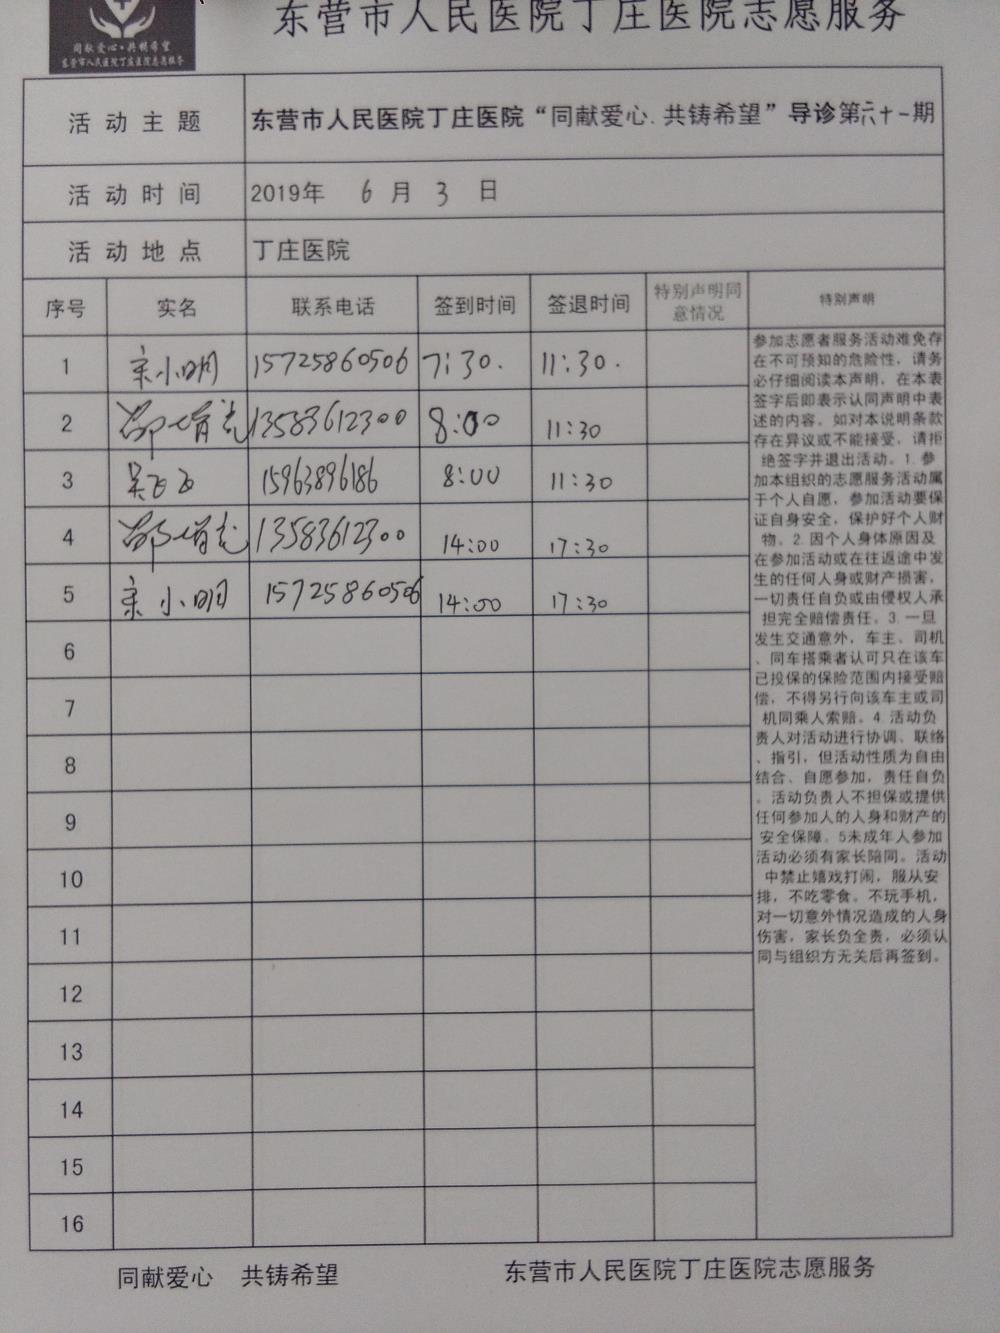 同献爱心·共铸希望
东营市人民医院丁庄医院志愿服务
东营市人民医院丁庄医院志愿服务
活动主题 东营市人民医院丁庄医院“同献爱心.共铸希望”导诊第六十一期
活动时间 2019年 6 月 3 日
活动地点 丁庄医院
序号 实名 联系电话 签到时间 签退时间 特别声明同意情况 特别声明
1 宋小明 15725860506 7:30. 11:30.
2 13583612300 8:00 11:30
3 15963896186 8:00 11:30
4 13583612300 14:00 17:30
5 宋小明 15725860506 14:00 17:30
6
7
8
9
10
11
12
13
14
15
16
参加志愿者服务活动难免存
在不可预知的危险性，请务
必仔细阅读本声明，在本表
签字后即表示认同声明中表
述的内容。如对本说明条款
存在异议或不能接受，请拒
绝签字并退出活动。1.参
加本组织的志愿服务活动属
于个人自愿，参加活动要保
证自身安全，保护好个人财
物。2.因个人身体原因及
在参加活动或在往返途中发
生的任何人身或财产损害，
一切责任自负或由侵权人承
担完全赔偿责任。3.一旦
发生交通意外，车主、司机
、同车搭乘者认可只在该车
已投保的保险范围内接受赔
偿，不得另行向该车主或司
机同乘人索赔。4.活动负
责人对活动进行协调、联络
、指引，但活动性质为自由
结合、自愿参加，责任自负
。活动负责人不担保或提供
任何参加人的人身和财产的
安全保障。5未成年人参加
活动必须有家长陪同。活动
中禁止嬉戏打闹，服从安
排，不吃零食。不玩手机，
对一切意外情况造成的人身
伤害，家长负全责，必须认
同与组织方无关后再签到。
同献爱心 共铸希望 东营市人民医院丁庄医院志愿服务